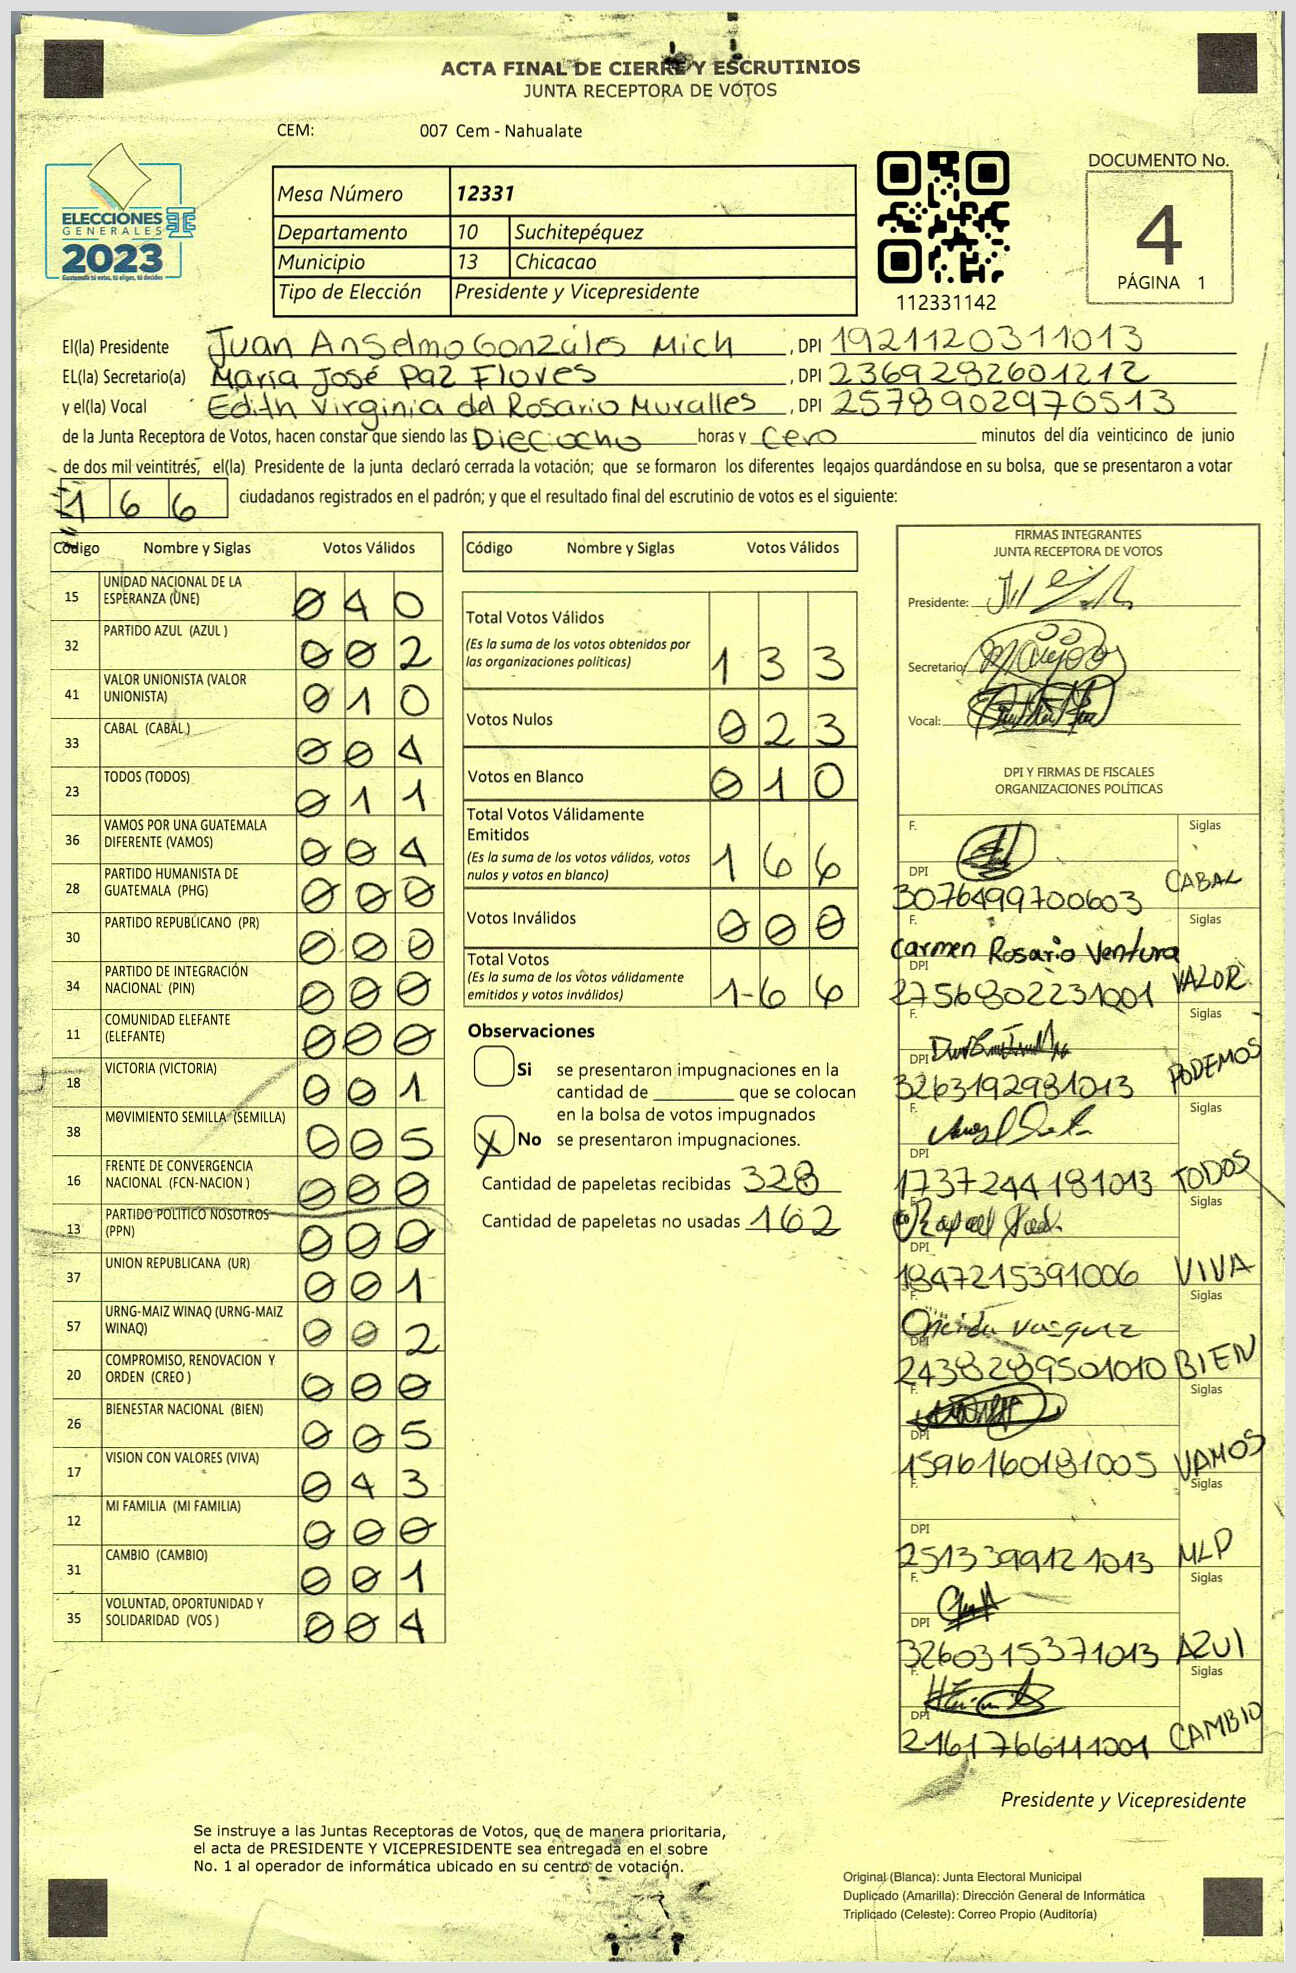 ACTA FINAL DE CIERRE Y ESCRUTINIOS
JUNTA RECEPTORA DE VOTOS
CEM: 007 Cem - Nahualate
ELECCIONES
GENERALES
2023
Guatemala tú votas, tú eliges, tú decides
Mesa Número 12331
Departamento 10 Suchitepéquez
Municipio 13 Chicacao
Tipo de Elección Presidente y Vicepresidente
112331142
DOCUMENTO No.
4
PÁGINA 1
El(la) Presidente Juan Anselmo Gonzáles Mich , DPI 1921120311013
EL(la) Secretario(a) María José Paz Flores , DPI 2369282601212
y el(la) Vocal Edith Virginia del Rosario Muralles , DPI 2578902970513
de la Junta Receptora de Votos, hacen constar que siendo las Dieciocho horas y Cero minutos del día veinticinco de junio
de dos mil veintitrés, el(la) Presidente de la junta declaró cerrada la votación; que se formaron los diferentes legajos guardándose en su bolsa, que se presentaron a votar
166 ciudadanos registrados en el padrón; y que el resultado final del escrutinio de votos es el siguiente:
Código Nombre y Siglas Votos Válidos
15 UNIDAD NACIONAL DE LA ESPERANZA (UNE) 040
32 PARTIDO AZUL (AZUL ) 002
41 VALOR UNIONISTA (VALOR UNIONISTA) 010
33 CABAL (CABAL ) 004
23 TODOS (TODOS) 011
36 VAMOS POR UNA GUATEMALA DIFERENTE (VAMOS) 004
28 PARTIDO HUMANISTA DE GUATEMALA (PHG) 000
30 PARTIDO REPUBLICANO (PR) 000
34 PARTIDO DE INTEGRACIÓN NACIONAL (PIN) 000
11 COMUNIDAD ELEFANTE (ELEFANTE) 000
18 VICTORIA (VICTORIA) 001
38 MOVIMIENTO SEMILLA (SEMILLA) 005
16 FRENTE DE CONVERGENCIA NACIONAL (FCN-NACION ) 000
13 PARTIDO POLITICO NOSOTROS (PPN) 000
37 UNION REPUBLICANA (UR) 001
57 URNG-MAIZ WINAQ (URNG-MAIZ WINAQ) 002
20 COMPROMISO, RENOVACION Y ORDEN (CREO ) 000
26 BIENESTAR NACIONAL (BIEN) 005
17 VISION CON VALORES (VIVA) 043
12 MI FAMILIA (MI FAMILIA) 000
31 CAMBIO (CAMBIO) 001
35 VOLUNTAD, OPORTUNIDAD Y SOLIDARIDAD (VOS ) 004
Código Nombre y Siglas Votos Válidos
Total Votos Válidos
(Es la suma de los votos obtenidos por
las organizaciones políticas) 133
Votos Nulos 023
Votos en Blanco 010
Total Votos Válidamente
Emitidos
(Es la suma de los votos válidos, votos
nulos y votos en blanco) 166
Votos Inválidos 000
Total Votos
(Es la suma de los votos válidamente
emitidos y votos inválidos) 1-66
Observaciones
Si se presentaron impugnaciones en la
cantidad de ________ que se colocan
en la bolsa de votos impugnados
X No se presentaron impugnaciones.
Cantidad de papeletas recibidas 328
Cantidad de papeletas no usadas 162
FIRMAS INTEGRANTES
JUNTA RECEPTORA DE VOTOS
Presidente:
Secretario:
Vocal:
DPI Y FIRMAS DE FISCALES
ORGANIZACIONES POLÍTICAS
F. Siglas
DPI 3076499700603 CABAL
F. Carmen Rosario Ventura Siglas
DPI 2756802231001 VALOR
F. Siglas
DPI 3263192981013 PODEMOS
F. Siglas
DPI 1737244181013 TODOS
F. Rafael Siglas
DPI 1847215391006 VIVA
F. Oneida Vasquez Siglas
DPI 2438289501010 BIEN
F. Siglas
DPI 1596160181005 VAMOS
F. Siglas
DPI 2513399121013 MLP
F. Siglas
DPI 3260315371013 AZUL
F. Siglas
DPI 2161766111001 CAMBIO
Presidente y Vicepresidente
Se instruye a las Juntas Receptoras de Votos, que de manera prioritaria,
el acta de PRESIDENTE Y VICEPRESIDENTE sea entregada en el sobre
No. 1 al operador de informática ubicado en su centro de votación.
Original (Blanca): Junta Electoral Municipal
Duplicado (Amarilla): Dirección General de Informática
Triplicado (Celeste): Correo Propio (Auditoría)